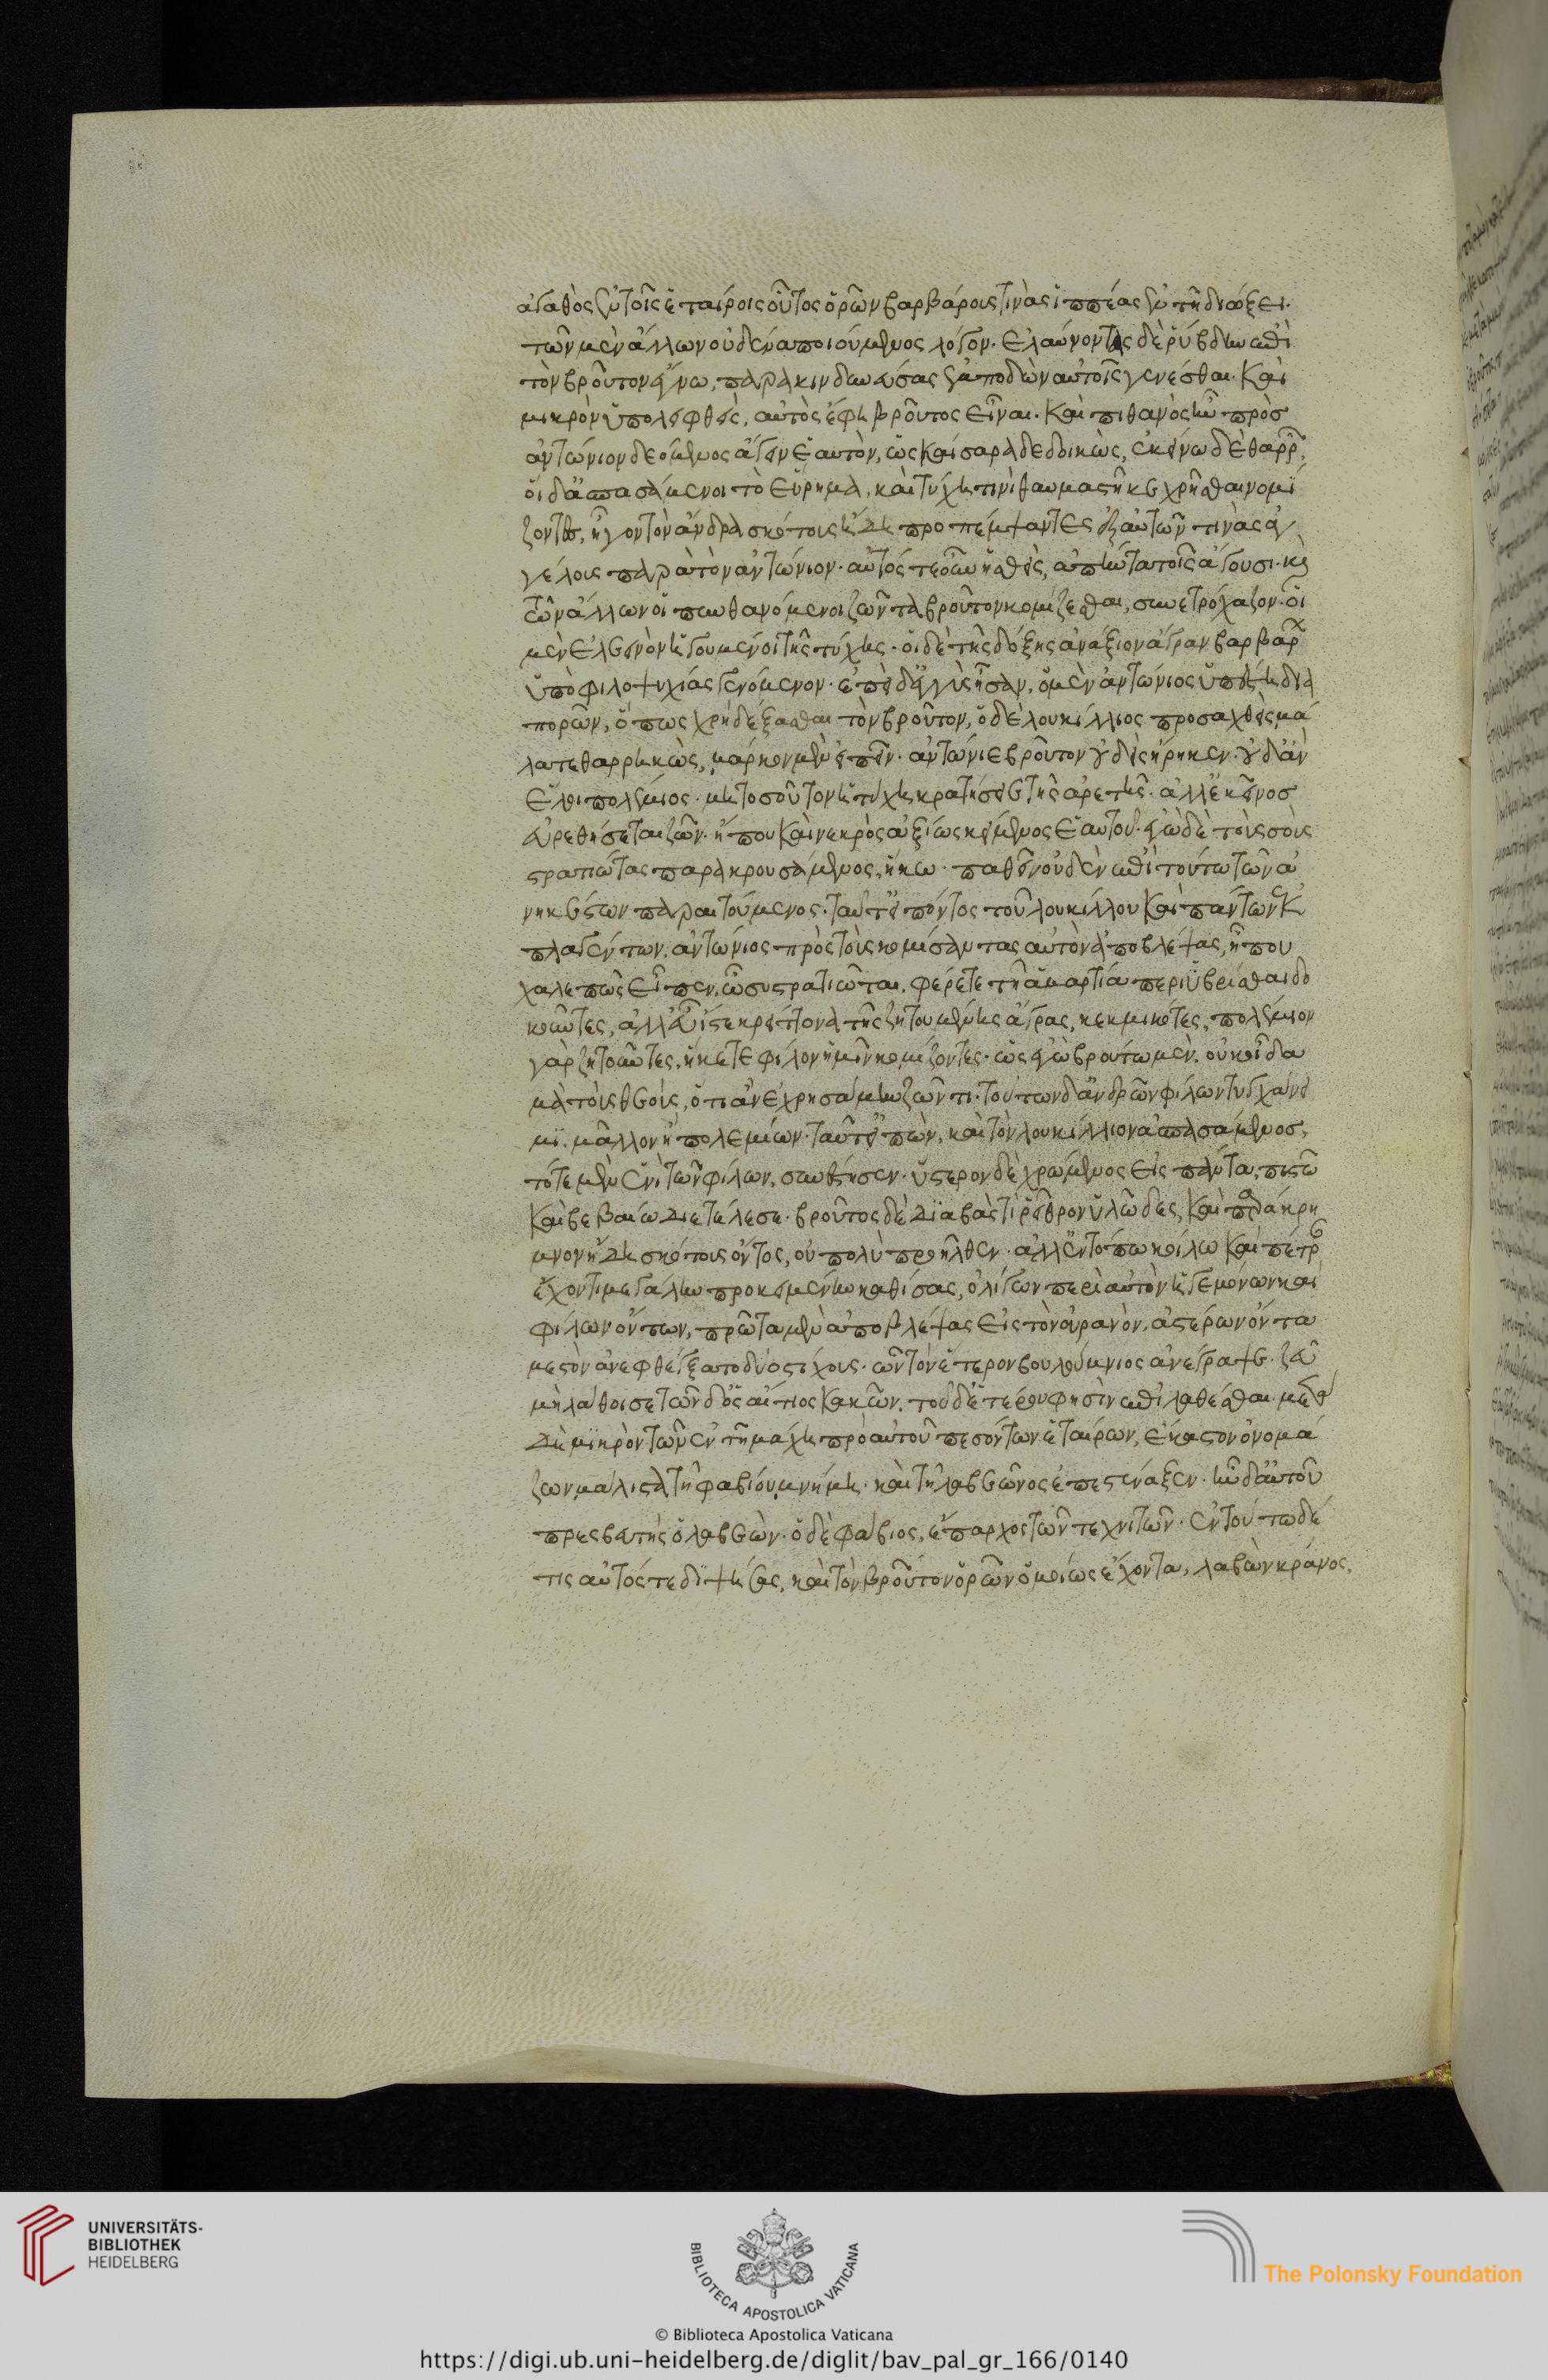 ἀγαθὸς ἐν τοῖς ἑταίροις οὗτος ὁρῶν βαρβάρους τινὰς ἱππέας ἐν τῇ διώξει.
τῶν μὲν ἄλλων οὐδένα ποιούμενος λόγον. ἐλαύνοντας δὲ ῥύβδην ἐπὶ
τὸν βροῦτον ἔγνω, παρακινδυνεύσας ἐμποδὼν αὐτοῖς γενέσθαι. Καὶ
μικρὸν ὑπολειφθεὶς, αὐτὸς ἔφη βροῦτος εἶναι. Καὶ πιθανὸς ἦν πρὸς
ἀντώνιον δεόμενος ἄγειν ἑαυτὸν, ὡς καίσαρα δεδοικὼς, ἐκείνω δὲ θαρρ
οἱ δ' ἀσπασάμενοι τὸ εὕρημα, καὶ τύχη τινὶ θαυμαστῆ κεχρῆσθαι νομί
ζοντες, ἦγον τὸν ἄνδρα σκότους ἤδη προπέμψαντες ἐξ αὐτῶν τινὰς ἀγ
γέλους παρὰ τὸν ἀντώνιον. αὐτός τε οὖν ἡσθεὶς, ἀπήντα τοῖς ἄγουσι. καὶ
τῶν ἄλλων οἱ πυνθανόμενοι ζῶντα βροῦτον κομίζεσθαι, συνετρόχαζον. οἱ
μὲν ἐλεεινὸν ἡγούμενοι τῆς τύχης. οἱ δὲ τῆς δόξης ἀνάξιον ἄγραν βαρβάρων
ὑπὸ φιλοψυχίας γενόμενον. ἐπεὶ δ' ἐγγὺς ἦσαν, ὁ μὲν ἀντώνιος ὑπέστη δια
πορῶν, ὅπως χρὴ δέξασθαι τὸν βροῦτον, ὁ δὲ λουκίλλιος προσαχθεὶς μά
λα τεθαρρηκὼς, μάρκον μὲν εἶπεν. ἀντώνιε βροῦτον οὐδεὶς ἥρηκεν. οὐδ' ἂν
ἕλοι πολέμιος. μὴ τοσοῦτον ἡ τύχη κρατήσειε τῆς ἀρετῆς. ἀλλ' ἐκεῖνος
εὑρεθήσεται ζῶν. ἤ που καὶ νεκρὸς ἀξίως κείμενος ἑαυτοῦ. ἐγὼ δὲ τοὺς σοὺς
στρατιώτας παρακρουσάμενος, ἥκω. παθεῖν οὐδὲν ἐπὶ τούτω τῶν ἀ
νηκέστων παραιτούμενος. ταῦτ' εἰπόντος τοῦ λουκίλλου καὶ πάντων ἐκ
πλαγέντων. ἀντώνιος πρὸς τοὺς κομίσαντας αὐτὸν ἀποβλέψας, ἦ που
χαλεπῶς εἶπεν, ὦ συστρατιῶται. φέρετε τῆ ἁμαρτία περιυβρίσθαι δο
κοῦντες, ἀλλ' εὖ ἴστε κρείττονα τῆς ζητουμένης ἄγρας, κεκμικότες, πολέμιον
γὰρ ζητοῦντες, ἥκετε φίλον ἡμῖν κομίζοντες. ὡς ἐγὼ βρούτω μὲν. οὐκ οἶδα
μὰ τοὺς θεοὺς, ὅτι ἂν ἐχρησάμην ζῶντι. τούτων δ' ἀνδρῶν φίλων τυγχάνοι
μι. μᾶλλον ἢ πολεμίων. ταῦτ' εἰπὼν, καὶ τὸν λουκίλλιον ἀσπασάμενος,
τότε μὲν ἑνὶ τῶν φίλων, συνέστησεν. ὕστερον δὲ χρώμενος εἰς πάντα, πιστῶ
καὶ βεβαίω διετέλεσε. βροῦτος δὲ διαβάς τι ῥεῖθρον ὑλῶδες, καὶ παράκρη
μνον ἤδη σκότους ὄντος, οὐ πολὺ προῆλθεν. ἀλλ' ἐν τόπω κοίλω καὶ πέτραν
ἔχοντι μεγάλην προκειμένην καθίσας, ὀλίγων περὶ αὐτὸν ἡγεμόνων καὶ
φίλων ὄντων, πρῶτα μὲν ἀποβλέψας εἰς τὸν οὐρανὸν, ἀστέρων ὄντα
μεστὸν ἀνεφθέγξατο δύο στίχους. ὧν τὸν ἕτερον βουλούμνιος ἀνέγραψε. ζεῦ
μὴ λάθοι σε τῶνδ' ὃς αἴτιος κακῶν. τοῦ δ' ἑτέρου φησὶν ἐπιλαθέσθαι. μετὰ
δὲ μικρὸν τῶν ἐν τῆ μάχη πρὸ αὐτοῦ πεσόντων ἑταίρων, ἕκαστον ὀνομά
ζων, μάλιστα τῆ φαβίου μνήμη. καὶ τῆ λαβεῶνος ἐπεστέναξεν. ἦν δ' αὐτοῦ
πρεσβευτὴς ὁ λαβεὼν. ὁ δὲ φάβιος, ἔπαρχος τῶν τεχνιτῶν. ἐν τούτω δέ
τις αὐτός τε διψήσας, καὶ τὸν βροῦτον ὁρῶν ὁμοίως ἔχοντα, λαβὼν κράνος,
UNIVERSITÄTS-
BIBLIOTHEK
HEIDELBERG
BIBLIOTECA APOSTOLICA VATICANA
The Polonsky Foundation
© Biblioteca Apostolica Vaticana
https://digi.ub.uni-heidelberg.de/diglit/bav_pal_gr_166/0140